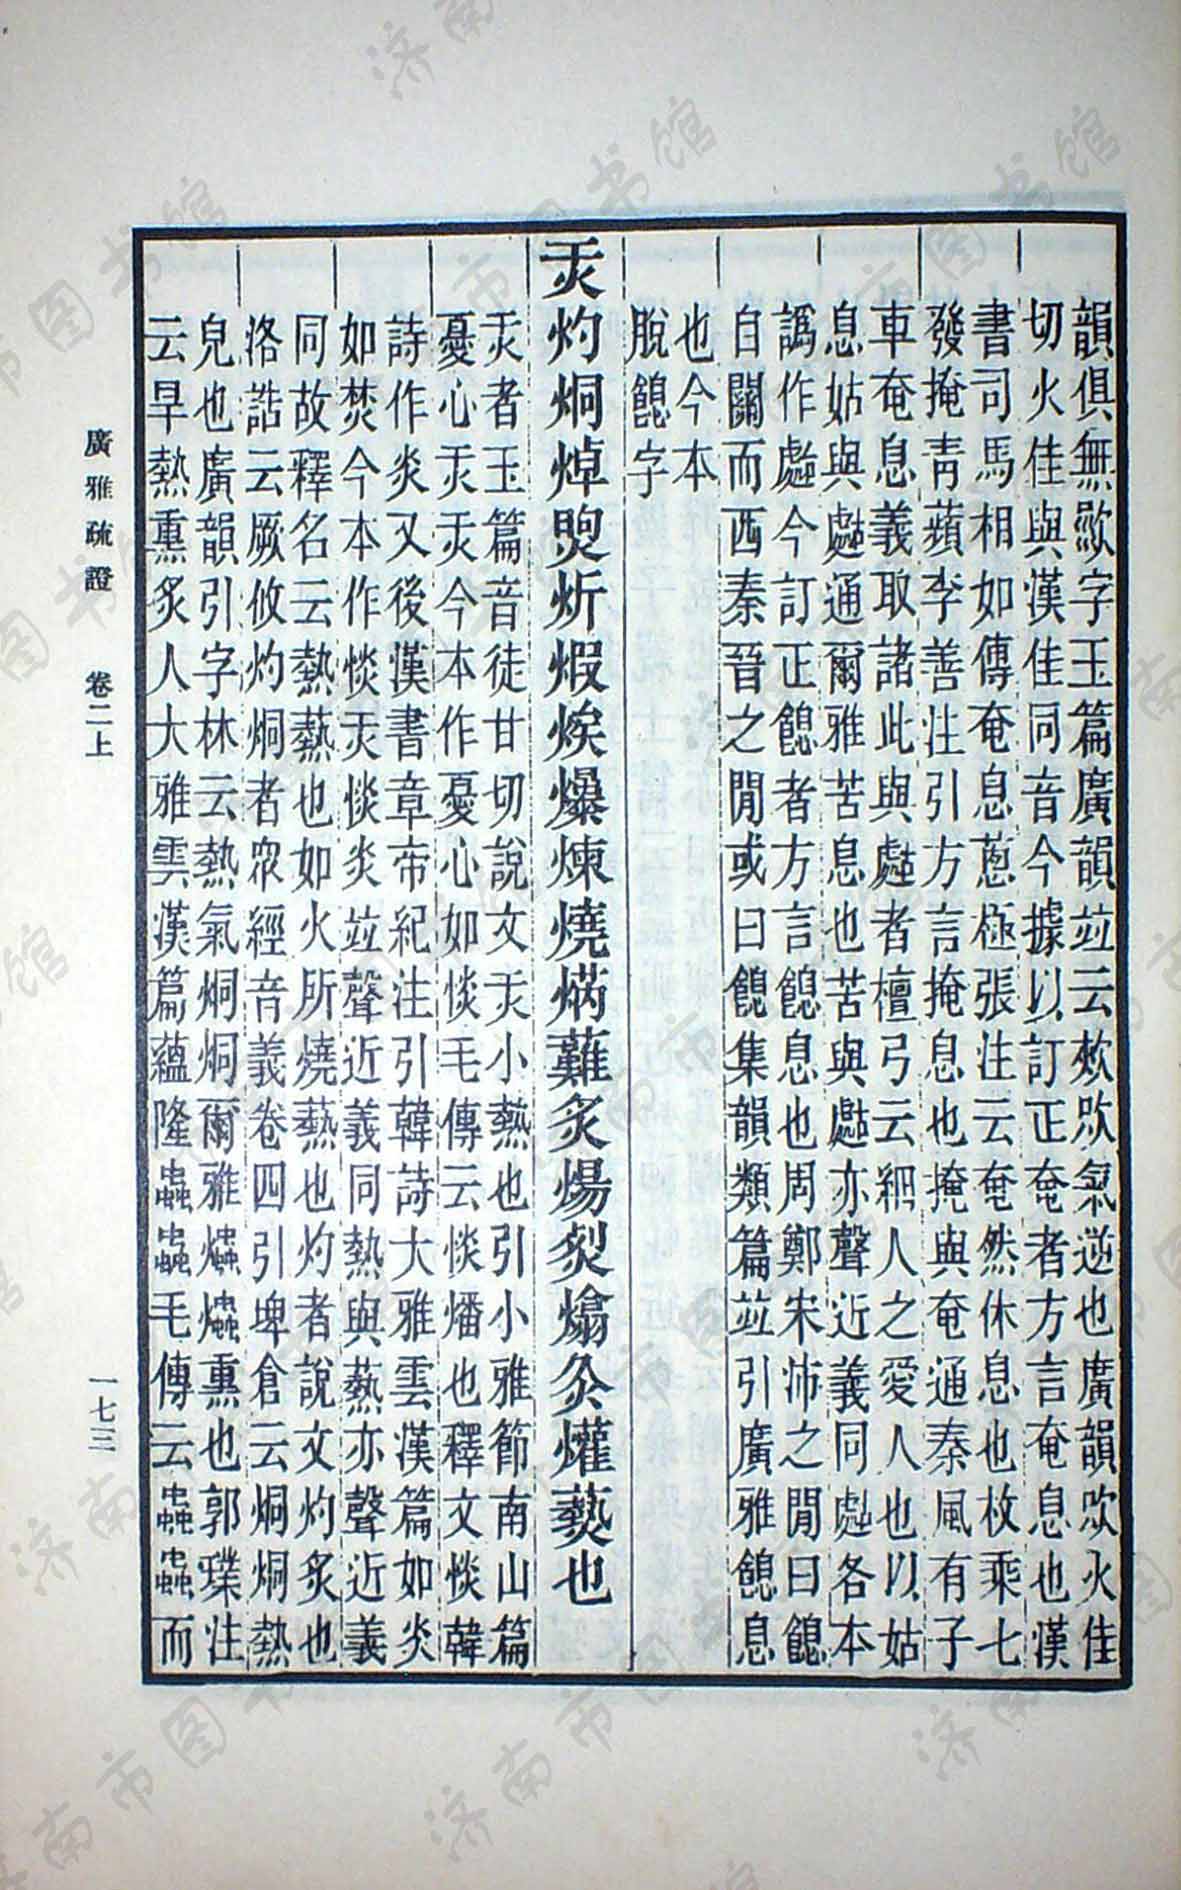 韻俱無歘字玉篇廣韻竝云欻吹氣逆也廣韻欻火佳
切火佳與漢佳同音今據以訂正奄者方言奄息也漢
書司馬相如傳奄息蔥極張注云奄然休息也枚乘七
發掩靑蘋李善注引方言掩息也掩與奄通秦風有子
車奄息義取諸此與㱠者檀弓云細人之愛人也以姑
息姑與㱠通爾雅苦息也苦與㱠亦聲近義同㱠各本
譌作處今訂正䭒者方言䭒息也周鄭宋沛之閒曰䭒
自關而西秦晉之閒或曰䭒集韻類篇竝引廣雅䭒息
也今本
脫䭒字
炗灼烔焯煚炘煆煐爆煉燒焫虇炙煬烮熻灸爟爇也
炗者玉篇音徒甘切說文炗小爇也引小雅節南山篇
憂心炗炗今本作憂心如惔毛傳云惔燔也釋文惔韓
詩作炎又後漢書章帝紀注引韓詩大雅雲漢篇如炎
如焚今本作惔炗惔炎竝聲近義同熱與爇亦聲近義
同故釋名云熱爇也如火所燒爇也灼者說文灼炙也
洛誥云厥攸灼烔者眾經音義卷四引埤倉云烔烔熱
皃也廣韻引字林云熱氣烔烔爾雅爞爞熏也郭璞注
云旱熱熏炙人大雅雲漢篇蘊隆蟲蟲毛傳云蟲蟲而
廣雅疏證
卷二上
一七三
济南市图书馆